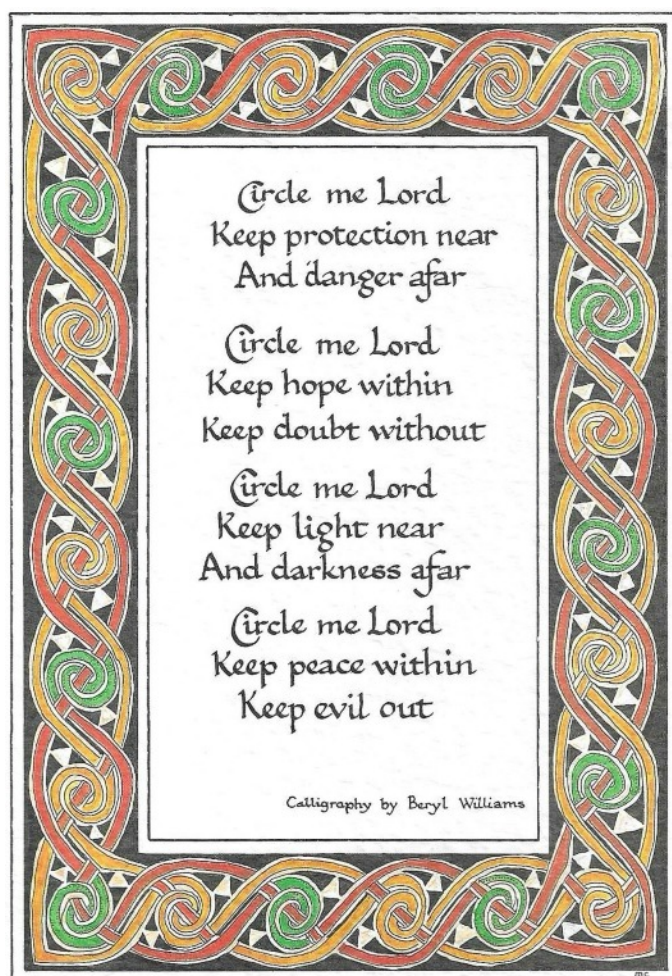 Circle me Lord
Keep protection near
And danger afar
Circle me Lord
Keep hope within
Keep doubt without
Circle me Lord
Keep light near
And darkness afar
Circle me Lord
Keep peace within
Keep evil out
Calligraphy by Beryl Williams